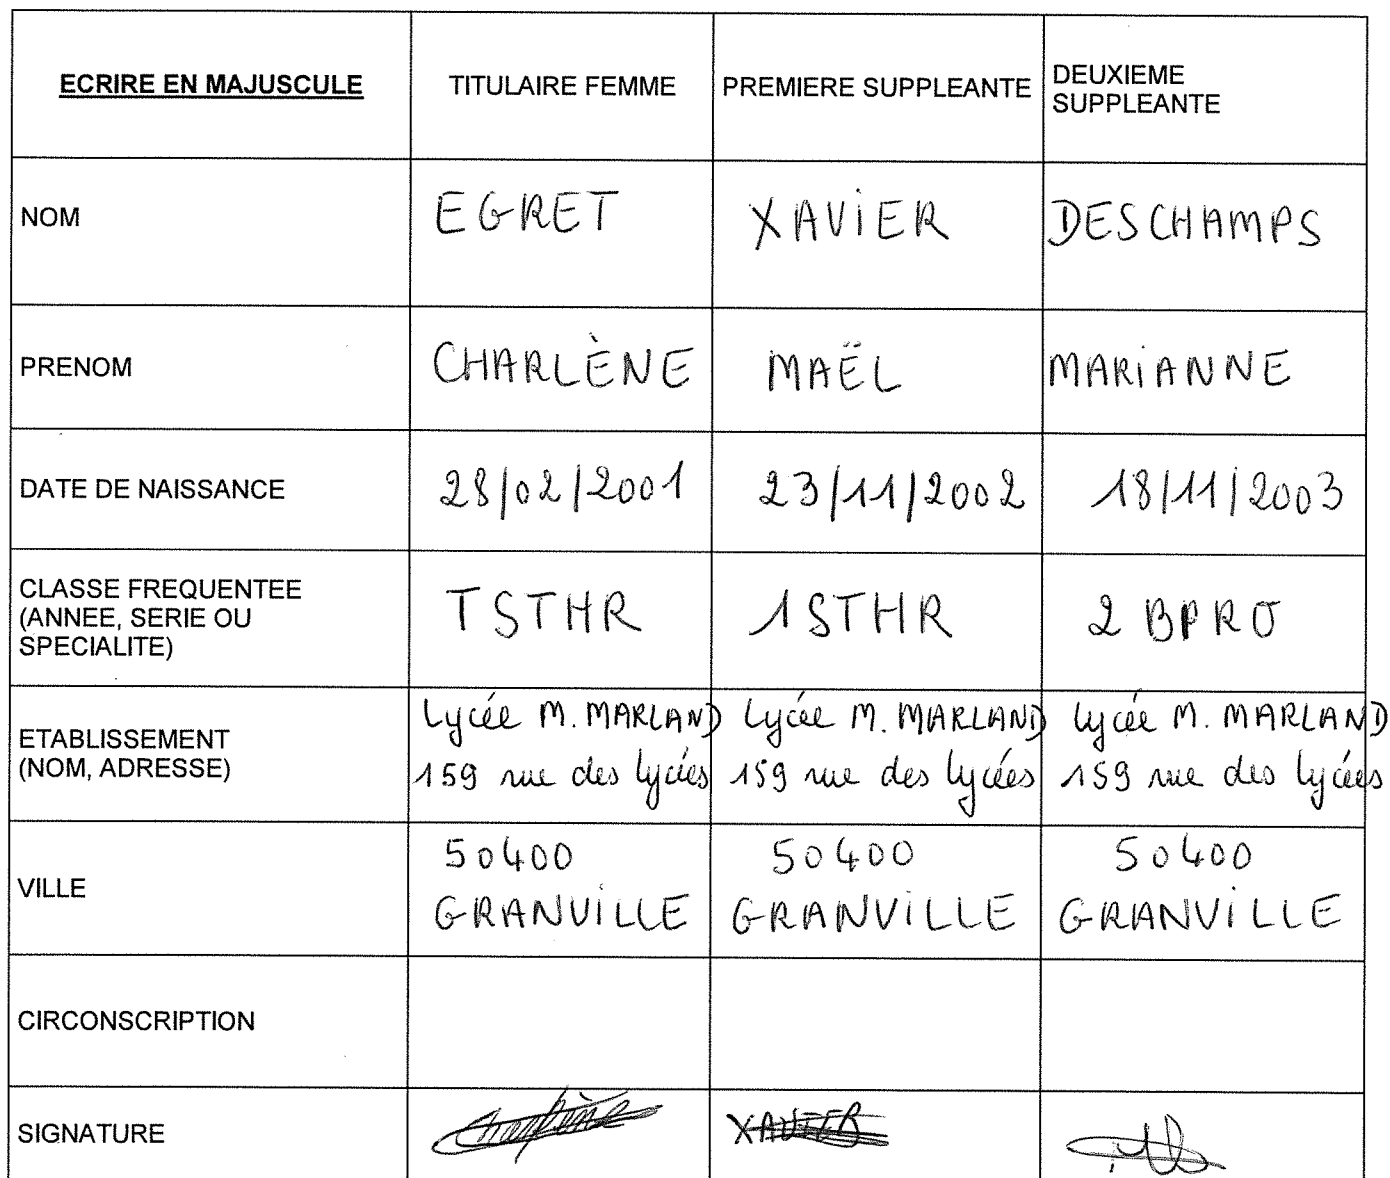 ECRIRE EN MAJUSCULE TITULAIRE FEMME PREMIERE SUPPLEANTE DEUXIEME
SUPPLEANTE
NOM EGRET XAVIER DESCHAMPS
PRENOM CHARLÈNE MAËL MARIANNE
DATE DE NAISSANCE 28/02/2001 23/11/2002 18/11/2003
CLASSE FREQUENTEE
(ANNEE, SERIE OU
SPECIALITE) TSTHR 1STHR 2 BPRO
ETABLISSEMENT
(NOM, ADRESSE) Lycée M. MARLAND Lycée M. MARLAND Lycée M. MARLAND
159 rue des lycées 159 rue des lycées 159 rue des lycées
VILLE 50400 50400 50400
GRANVILLE GRANVILLE GRANVILLE
CIRCONSCRIPTION
SIGNATURE XAVIER